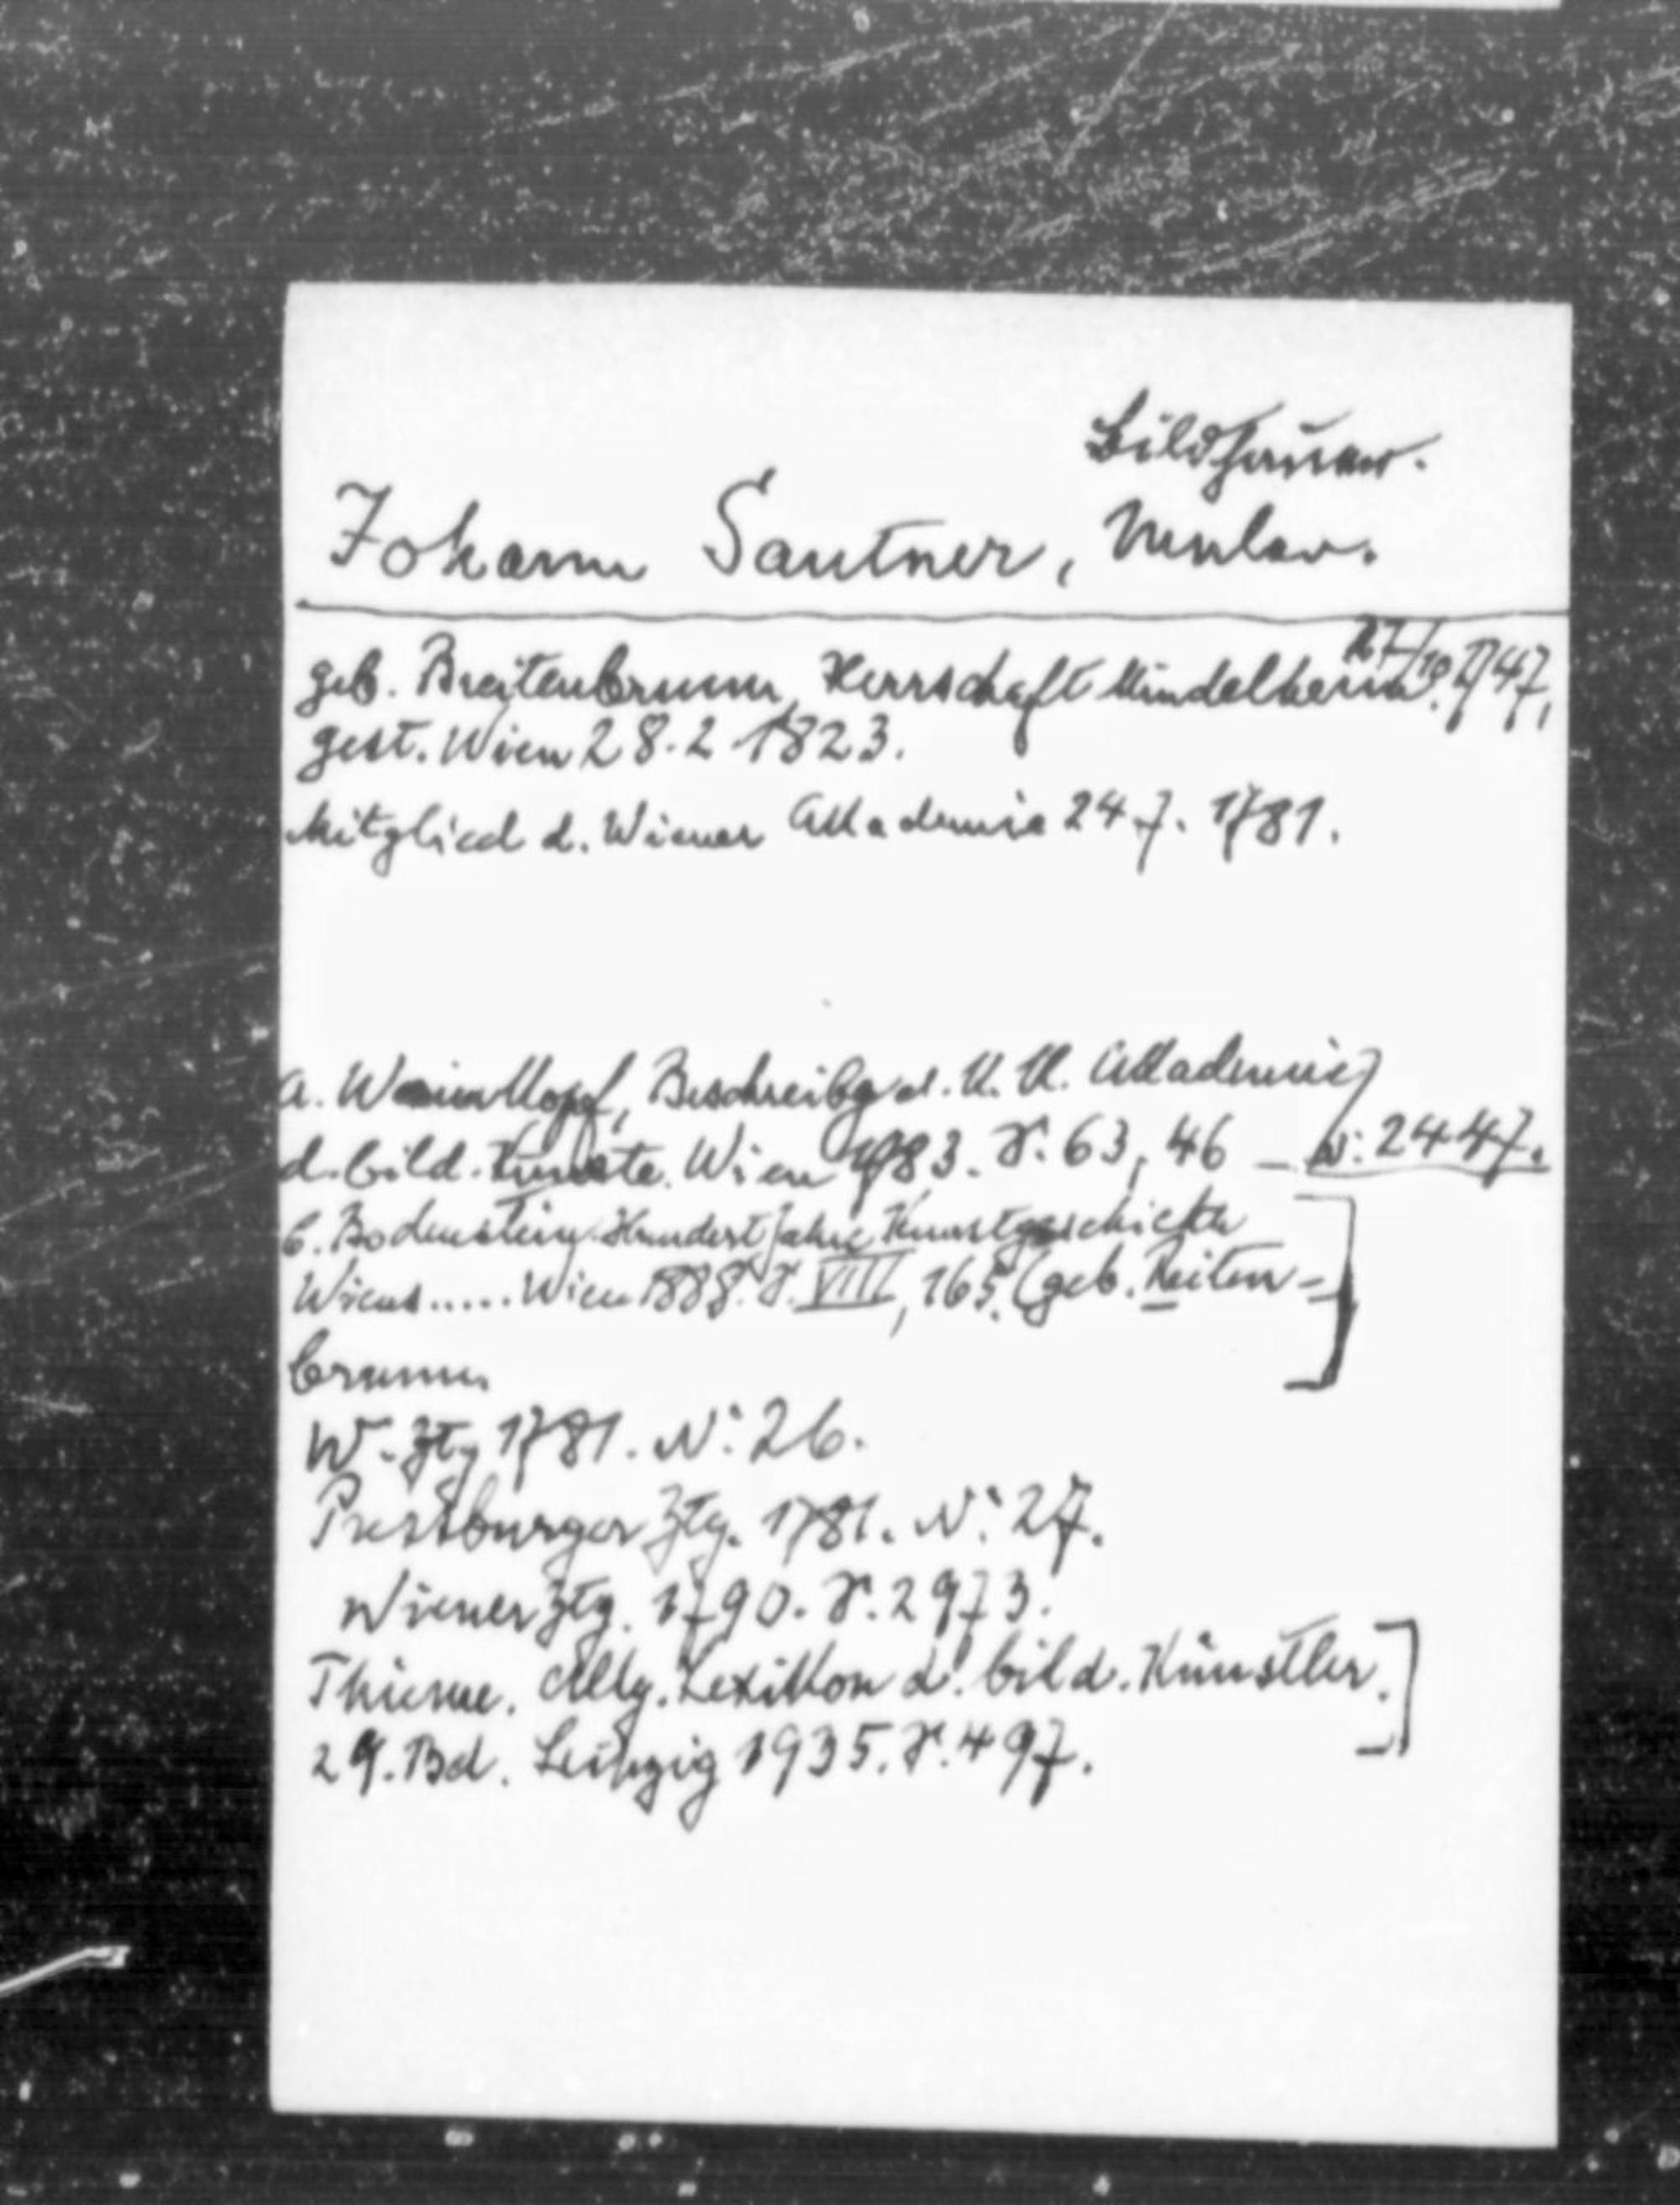 Bildhauer.
Johann Sautner, Maler.
geb. Breitenbrunn, Herrschaft Mindelheim 27/10. 1747,
gest. Wien 28.2 1823.
Mitglied d. Wiener Akademie 24.7. 1781.
A. Weinkopf, Beschreibg d. K. K. Akademie
d. bild. Künste. Wien 1783. S. 63, 46 – N: 2447.
C. Bodenstein. Hundert Jahre Kunstgeschichte
Wiens..... Wien 1888. S. VIII, 165. (geb. Reiten-
brunn
W. Ztg 1781. N: 26.
Pressburger Ztg. 1781. N: 27.
Wiener Ztg. 1790. S. 2973.
Thieme. Allg. Lexikon d. bild. Künstler.
29. Bd. Leipzig 1935. S. 497.